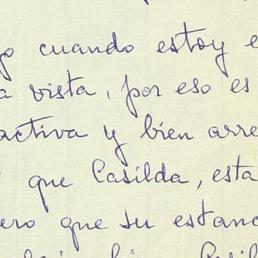 go cuando estoy e
a vista, por eso es
activa y bien arre
que Casilda, esta
ero que su estanc